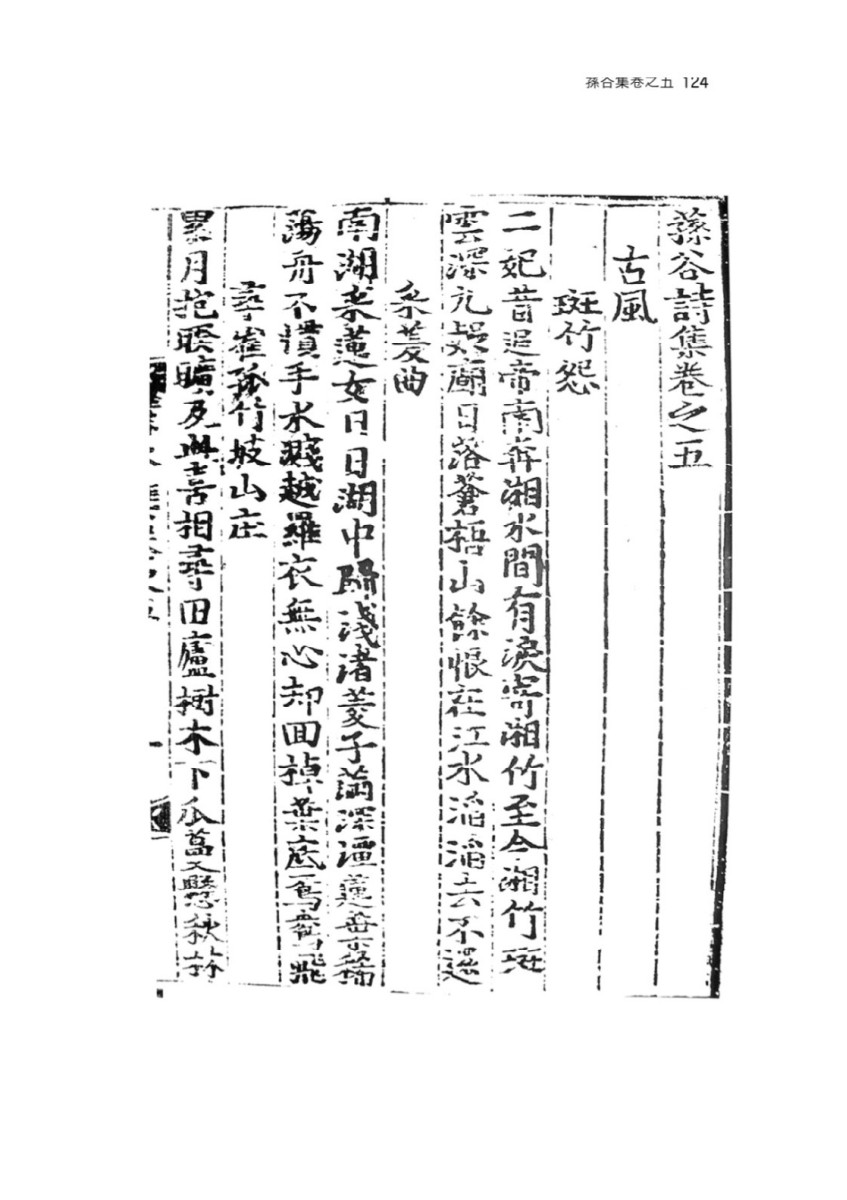 孫谷集卷之五 124
蓀谷詩集卷之五
古風
斑竹怨
二妃昔追帝南奔湘水間有淚寄湘竹至今湘竹斑
雲深九疑廟日落蒼梧山餘恨在江水滔滔去不還
采菱曲
南湖采蓮女日日湖中歸淺渚菱子滿深潭蓮葉稀
蕩舟不慣手水濺越羅衣無心却回棹葉底鴛鴦飛
尋崔孤竹坡山庄
累月抱暌曠及此喜相尋旧廬樹木下瓜蔓又懸秋